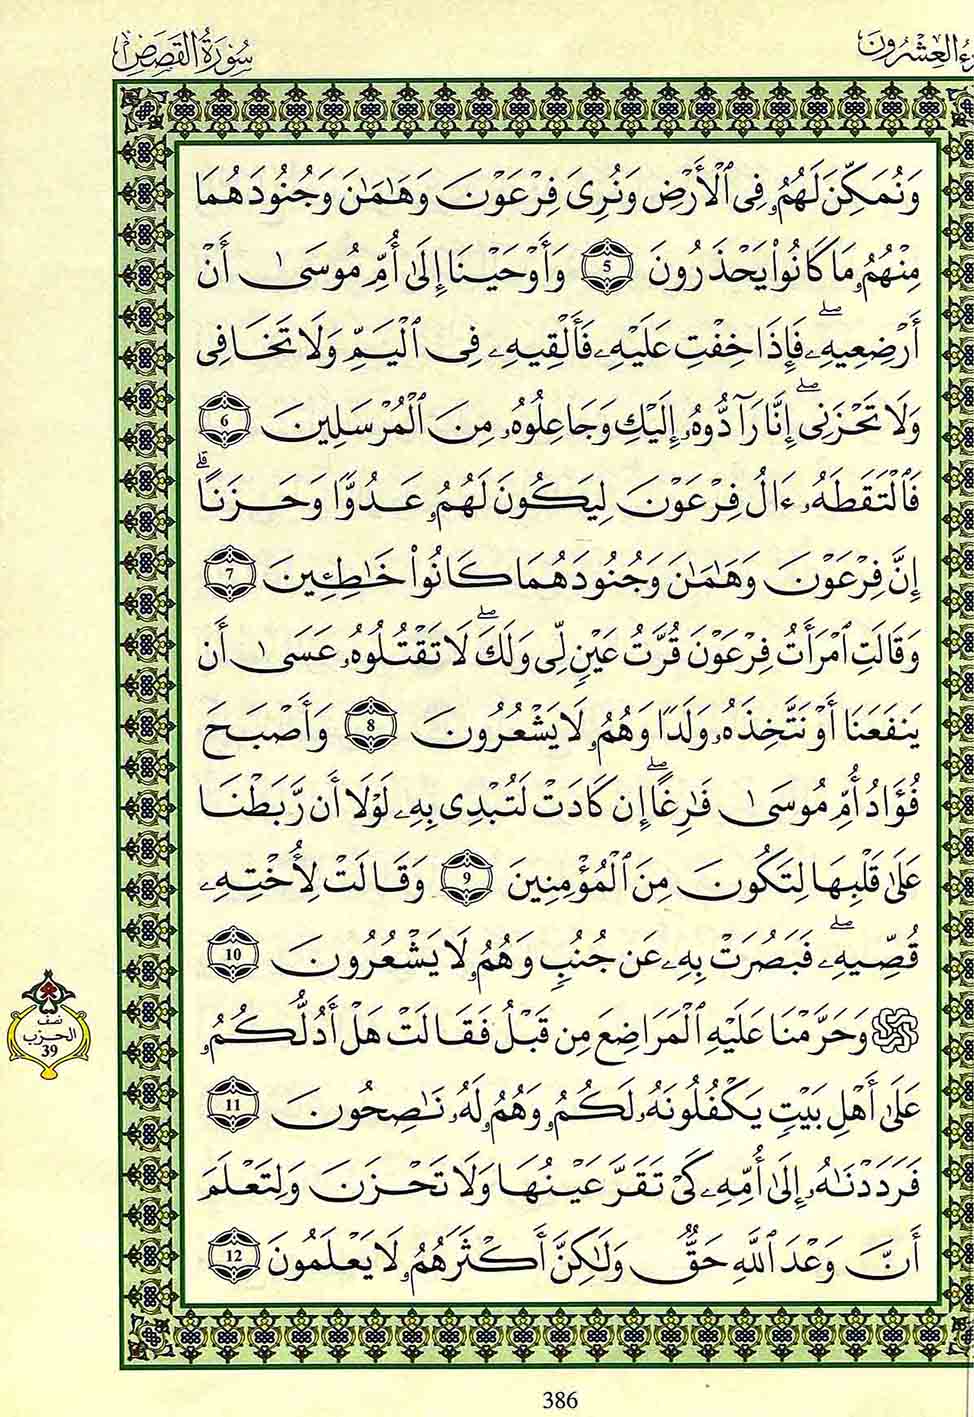 سُورَةُ القَصَصِ
زءُ العِشْرُونَ
وَنُمَكِّنَ لَهُمُۥ فِى ٱلْأَرْضِ وَنُرِىَ فِرْعَوْنَ وَهَٰمَٰنَ وَجُنُودَهُمَا
مِنْهُمُۥ مَا كَانُوا۟ يَحْذَرُونَ 5 وَأَوْحَيْنَا إِلَىٰ أُمِّ مُوسَىٰ أَنْ
أَرْضِعِيهِۦ ۖ فَإِذَا خِفْتِ عَلَيْهِۦ فَأَلْقِيهِۦ فِى ٱلْيَمِّ وَلَا تَخَافِى
وَلَا تَحْزَنِى ۖ إِنَّا رَآدُّوهُۥ إِلَيْكِ وَجَاعِلُوهُۥ مِنَ ٱلْمُرْسَلِينَ 6
فَٱلْتَقَطَهُۥ ءَالُ فِرْعَوْنَ لِيَكُونَ لَهُمُۥ عَدُوًّا وَحَزَنًا ۗ
إِنَّ فِرْعَوْنَ وَهَٰمَٰنَ وَجُنُودَهُمَا كَانُوا۟ خَٰطِـِٔينَ 7
وَقَالَتِ ٱمْرَأَتُ فِرْعَوْنَ قُرَّتُ عَيْنٍ لِّى وَلَكَ ۖ لَا تَقْتُلُوهُۥ عَسَىٰ أَن
يَنفَعَنَا أَوْ نَتَّخِذَهُۥ وَلَدًا وَهُمُۥ لَا يَشْعُرُونَ 8 وَأَصْبَحَ
فُؤَادُ أُمِّ مُوسَىٰ فَٰرِغًا ۖ إِن كَادَتْ لَتُبْدِى بِهِۦ لَوْلَا أَن رَّبَطْنَا
عَلَىٰ قَلْبِهَا لِتَكُونَ مِنَ ٱلْمُؤْمِنِينَ 9 وَقَالَتْ لِأُخْتِهِۦ
قُصِّيهِۦ ۖ فَبَصُرَتْ بِهِۦ عَن جُنُبٍ وَهُمُۥ لَا يَشْعُرُونَ 10
وَحَرَّمْنَا عَلَيْهِ ٱلْمَرَاضِعَ مِن قَبْلُ فَقَالَتْ هَلْ أَدُلُّكُمُۥ
عَلَىٰ أَهْلِ بَيْتٍ يَكْفُلُونَهُۥ لَكُمُۥ وَهُمُۥ لَهُۥ نَٰصِحُونَ 11
فَرَدَدْنَٰهُۥ إِلَىٰ أُمِّهِۦ كَىْ تَقَرَّ عَيْنُهَا وَلَا تَحْزَنَ وَلِتَعْلَمَ
أَنَّ وَعْدَ ٱللَّهِ حَقٌّ وَلَٰكِنَّ أَكْثَرَهُمُۥ لَا يَعْلَمُونَ 12
نصف
الحزب
39
386